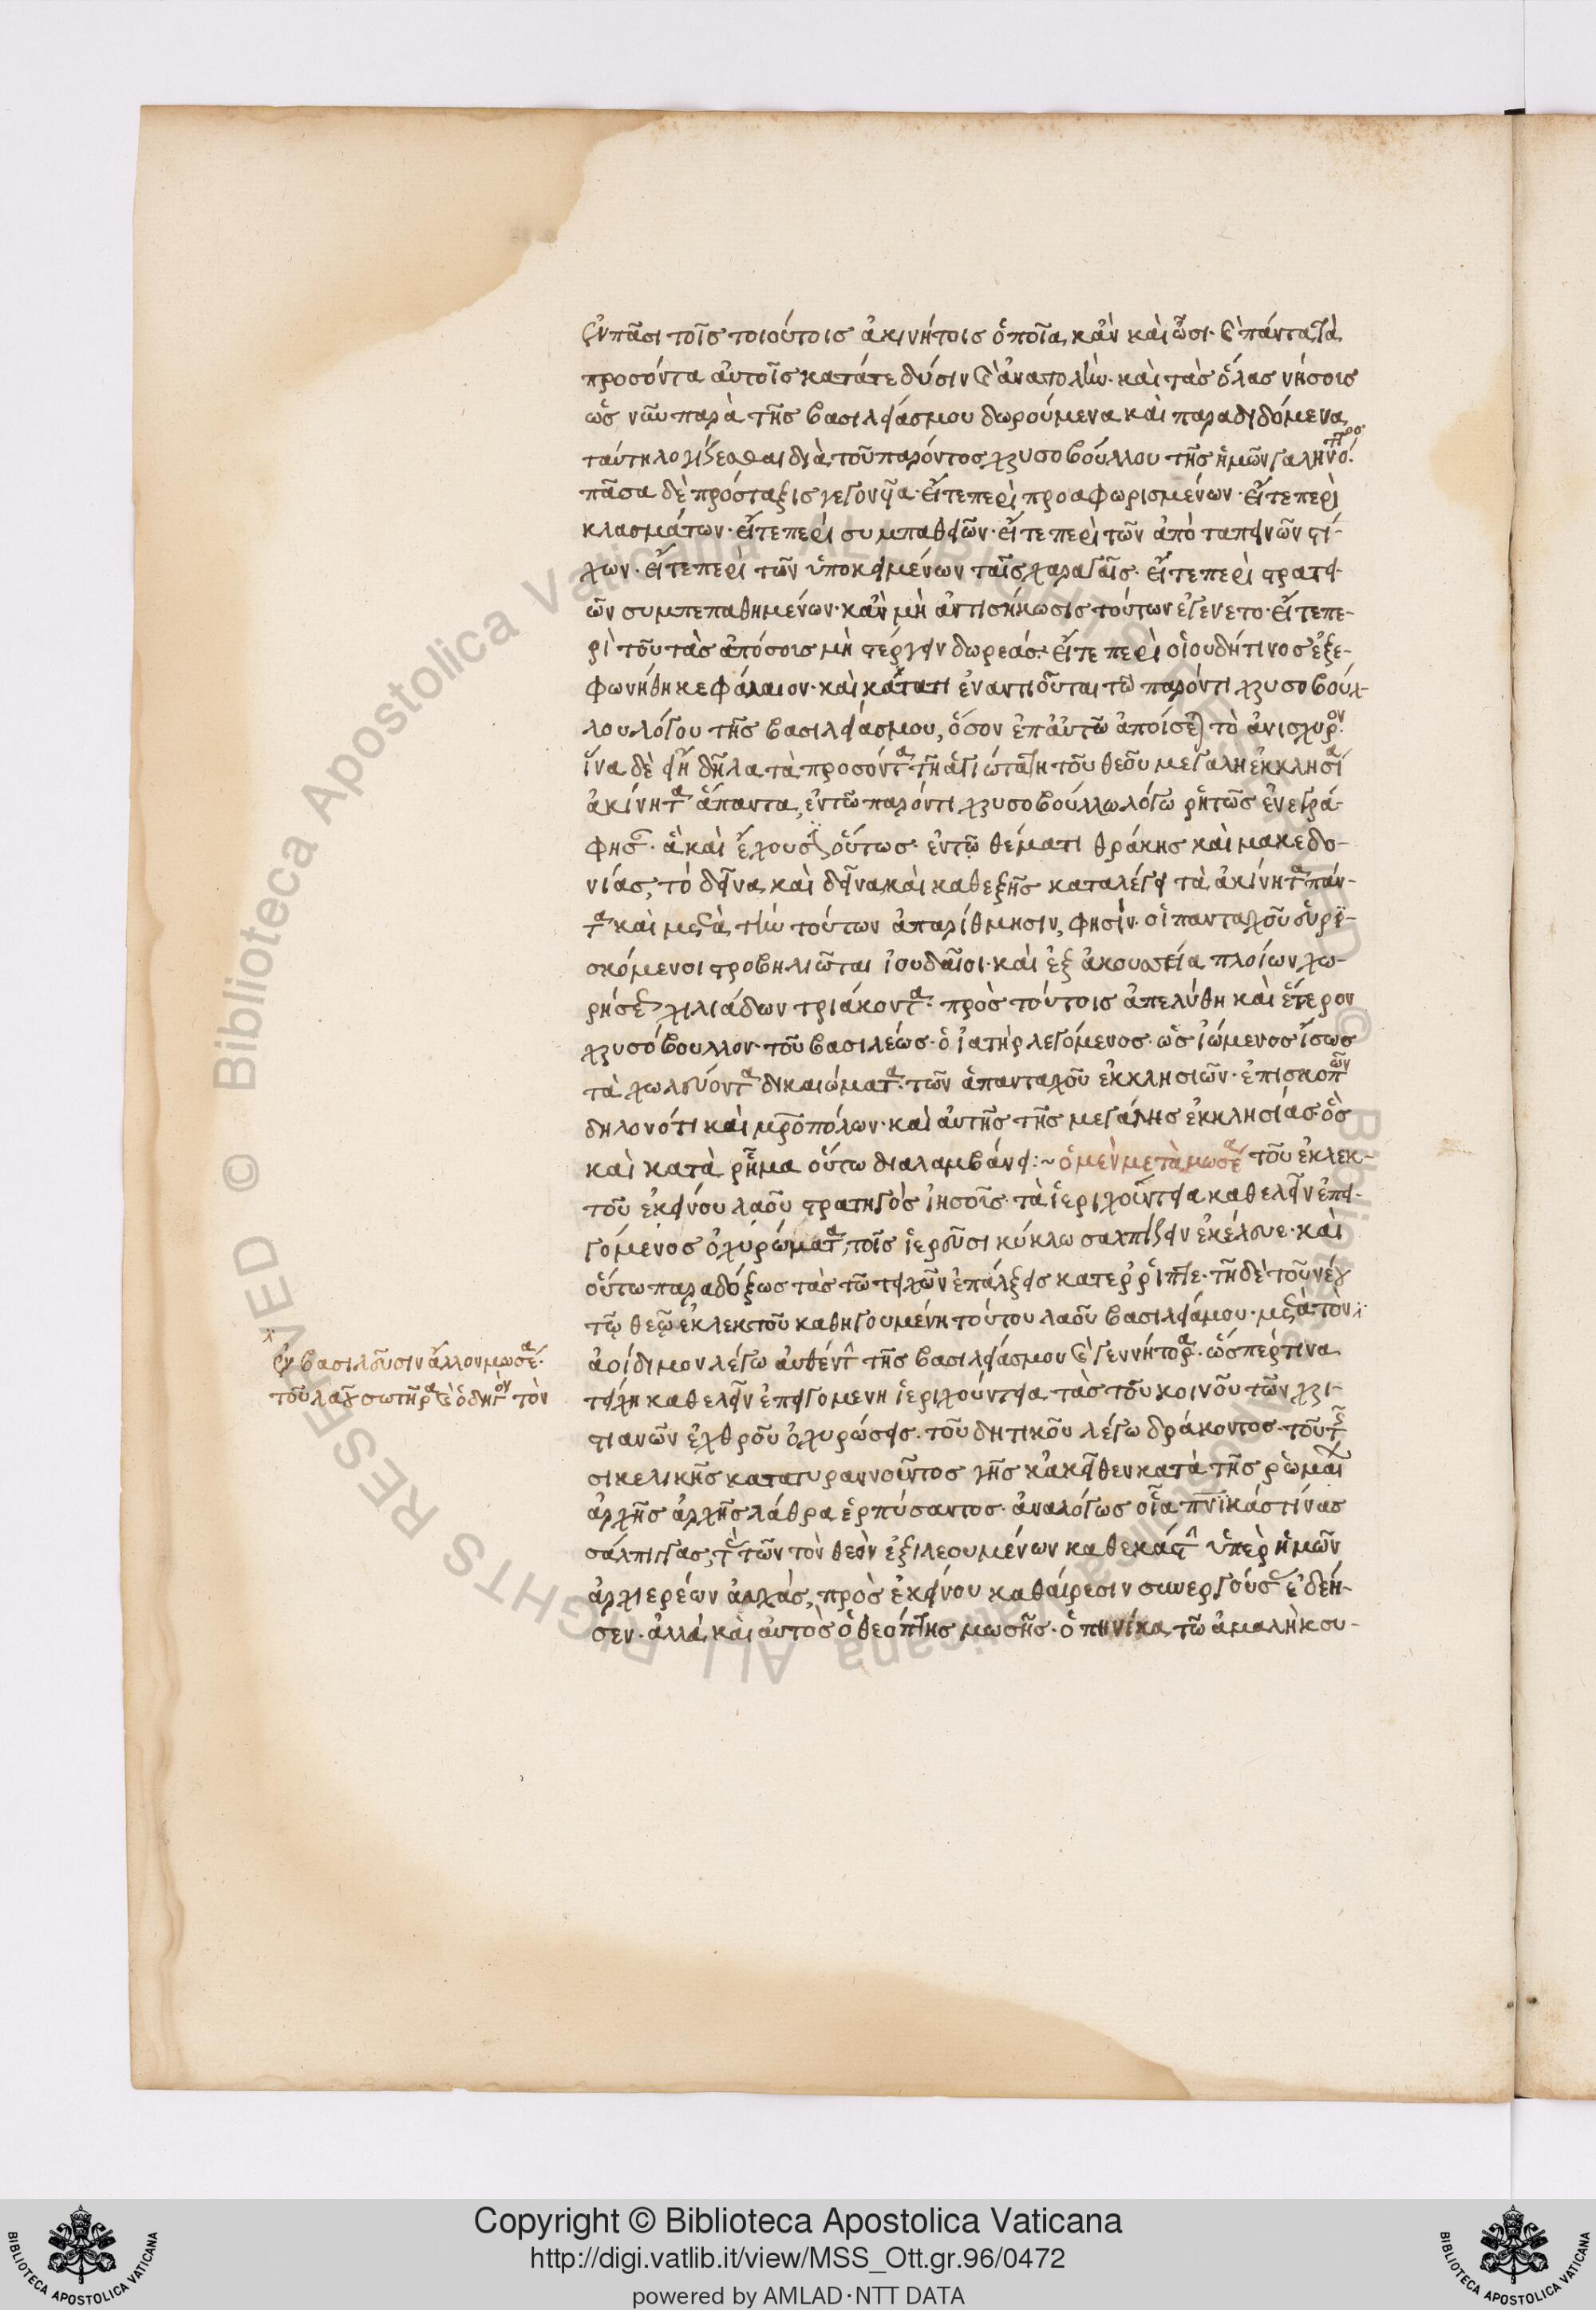 ἐν πᾶσι τοῖς τοιούτοις ἀκινήτοις ὁποῖα κἂν καὶ ὦσι· καὶ πάντα τὰ
προσόντα αὐτοῖς κατά τε δύσιν καὶ ἀνατολὴν· καὶ τὰς ὅλας νήσοις
ὡς νῦν παρὰ τῆς βασιλείας μου δωρούμενα καὶ παραδιδόμενα
ταύτη λογίζεσθαι διὰ τοῦ παρόντος χρυσοβούλλου τῆς ἡμῶν γαληνότητος·
πᾶσα δὲ πρόσταξις γεγονυῖα· εἴτε περὶ προαφωρισμένων· εἴτε περὶ
κλασμάτων· εἴτε περὶ συμπαθειῶν· εἴτε περὶ τῶν ἀπὸ ταπεινῶν στί-
χων· εἴτε περὶ τῶν ὑποκειμένων ταῖς χαραγαῖς· εἴτε περὶ στρατει-
ῶν συμπεπαθημένων· κἂν μὴ ἀντισήκωσις τούτων ἐγένετο· εἴτε πε-
ρὶ τοῦ τὰς ἀπόσοις μὴ στέργειν δωρεάς· εἴτε περὶ οἱουδήτινος ἐξε-
φωνήθη κεφάλαιον· καὶ κατά τι ἐναντιοῦται τῶ παρόντι χρυσοβούλ-
λου λόγου τῆς βασιλείας μου, ὅσον ἐπ αὐτῶ ἀποίσεται τὸ ἀνίσχυρον·
ἵνα δὲ εἴη δῆλα τὰ προσόντα τῆ ἁγιωτάτη τοῦ θεοῦ μεγάλη ἐκκλησία
ἀκίνητα ἅπαντα, ἐν τῶ παρόντι χρυσοβούλλω λόγω ῥητῶς ἐνεγρά-
φησαν· ἃ καὶ ἔχουσιν οὕτως· ἐν τῷ θέματι θράκης καὶ μακεδο-
νίας, τὸ δεῖνα καὶ δεῖνα καὶ καθεξῆς καταλέγει τὰ ἀκίνητα πάν-
τα καὶ μετὰ τὴν τούτων ἀπαρίθμησιν, φησὶν· οἱ πανταχοῦ εὑρι-
σκόμενοι στροβηλιῶται ἰουδαῖοι· καὶ ἐξ ἀκουστεία πλοίων χω-
ρήσεως χιλιάδων τριάκοντα· πρὸς τούτοις ἀπελύθη καὶ ἕτερον
χρυσόβουλλον τοῦ βασιλέως· ὁ ἰατὴρ λεγόμενος· ὡς ἰώμενος ἴσως
τὰ χωλεύοντα δικαιώματα· τῶν ἁπανταχοῦ ἐκκλησιῶν· ἐπισκοπῶν
δηλονότι καὶ μητροπόλεων· καὶ αὐτῆς τῆς μεγάλης ἐκκλησίας ὃς
καὶ κατὰ ῥῆμα οὕτω διαλαμβάνει:~ ὁ μὲν μετὰ μωσέα τοῦ ἐκλεκ-
τοῦ ἐκείνου λαοῦ στρατηγὸς ἰησοῦς· τὰ ἱεριχούντεια καθελεῖν ἐπει-
γόμενος ὀχυρώματα, τοῖς ἱερεῦσι κύκλω σαλπίζειν ἐκέλευε· καὶ
οὕτω παραδόξως τὰς τῶν τειχῶν ἐπάλξεις κατερρίπτε· τῆ δὲ τοῦ νέου
τῷ θεῷ ἐκλεκτοῦ καθηγουμένη τούτου λαοῦ βασιλεία μου· μετὰ τὸν
ἐν βασιλεῦσιν ἄλλον μωσέα·
τοῦ λαοῦ σωτῆρα καὶ ὁδηγὸν τὸν
ἀοίδιμον λέγω αὐθέντην τῆς βασιλείας μου καὶ γεννήτορα· ὥσπερ τινα
τείχη καθελεῖν ἐπειγομένη ἱεριχούντεια τὰς τοῦ κοινοῦ τῶν χρι-
στιανῶν ἐχθροῦ ὀχυρώσεις· τοῦ δυτικοῦ λέγω δράκοντος· τοῦ τῆς
σικελικῆς κατατυραννοῦντος γῆς κἀκεῖθεν κατὰ τῆς ῥωμαϊκῆς
ἀρχῆς ἀρχῆς λάθρα ἑρπύσαντος· ἀναλόγως οἷα πνευματικάς τινας
σάλπιγγας, τὰς τῶν τὸν θεὸν ἐξιλεουμένων καθεκάστην ὑπὲρ ἡμῶν
ἀρχιερέων εὐχὰς, πρὸς ἐκείνου καθαίρεσιν συνεργούσας ἐδέη-
σεν· ἀλλὰ καὶ αὐτὸς ὁ θεόπτης μωσῆς· ὁπηνίκα τῶ ἀμαλὴκ συ-
Copyright © Biblioteca Apostolica Vaticana
http://digi.vatlib.it/view/MSS_Ott.gr.96/0472
powered by AMLAD·NTT DATA
BIBLIOTECA APOSTOLICA VATICANA
BIBLIOTECA APOSTOLICA VATICANA
© Biblioteca Apostolica Vaticana ALL RIGHTS RESERVED
© Biblioteca Apostolica Vaticana ALL RIGHTS RESERVED